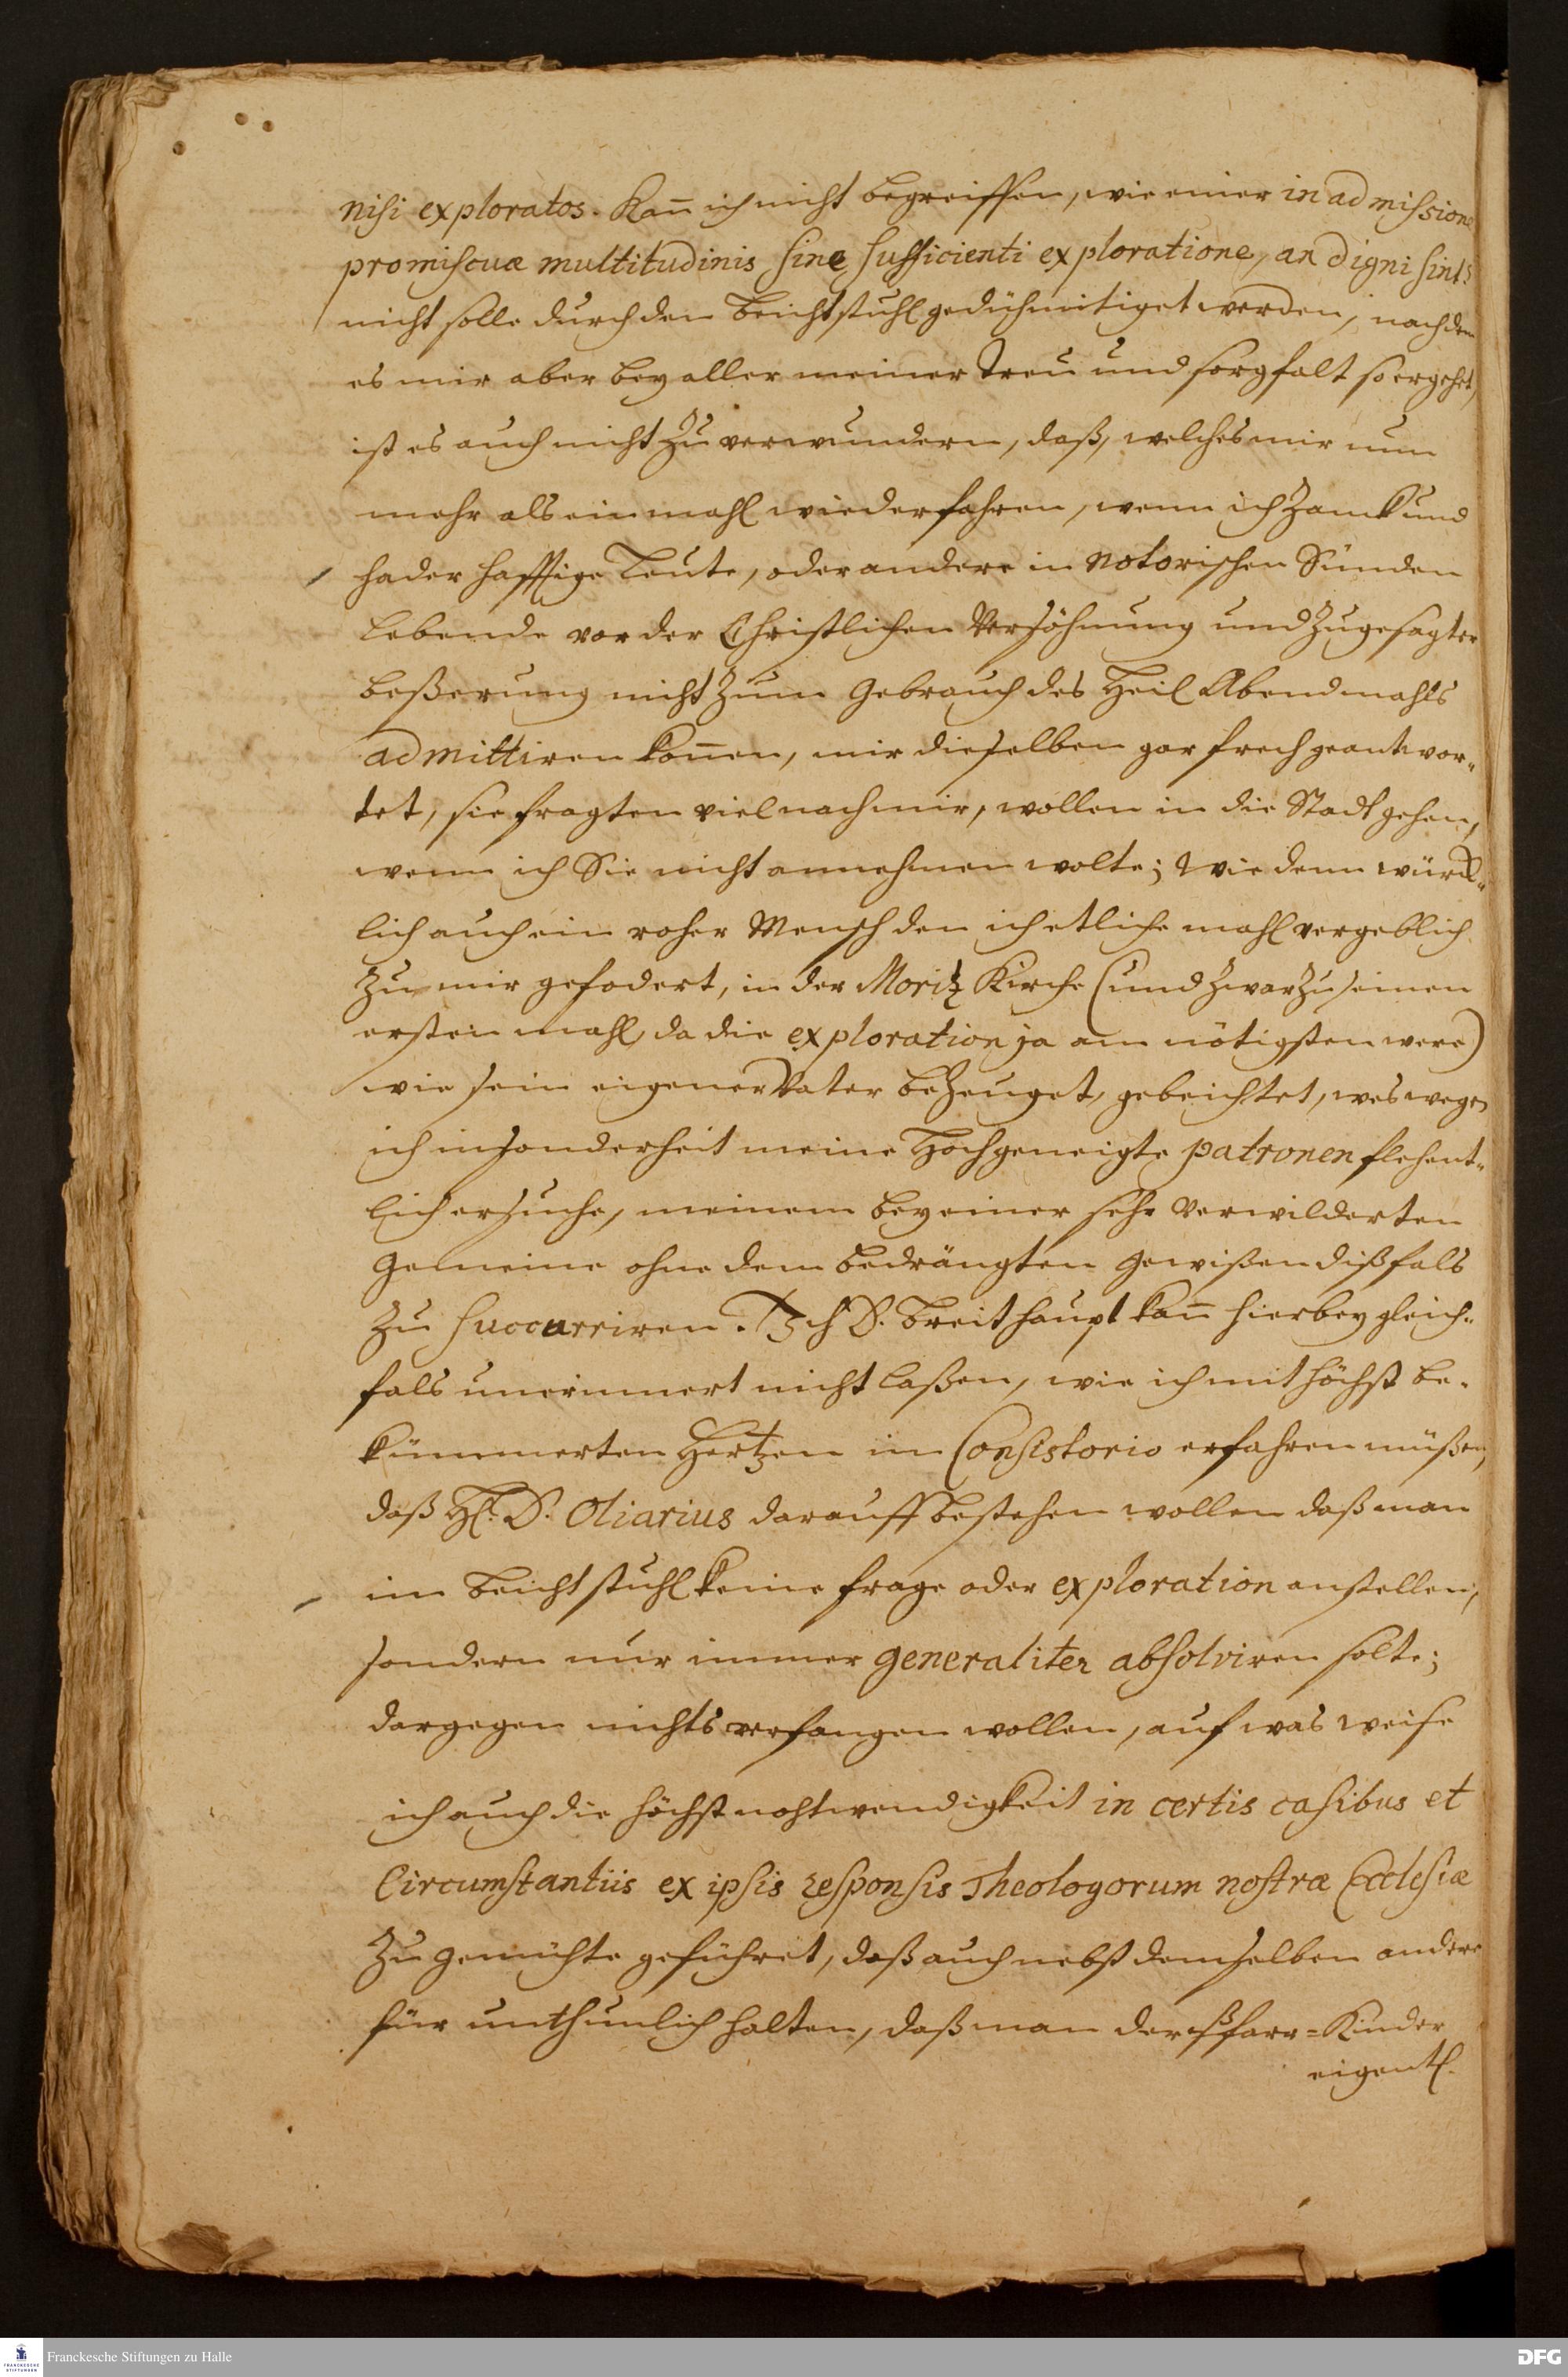 nisi exploratos. Kan̄ ich nicht begreiffen, wie einer in admissione
promiscuæ multitudinis sine sufficienti exploratione, an digni sint?
nicht solle durch den Beichtstuhl gedühmitiget werden, nachdem
es mir aber bey aller meiner Treu und sorgfalt so ergehet,
ist es auch nicht zu verwundern, daß, welches mir nun
mehr als ein mahl wiederfahren, wenn ich Zanck und
hader hafftige Leute, oder andere in notorischen Sünden
lebende vor der Christlichen Versöhnung und zugesagter
beßerung nicht zum Gebrauch des Heil Abendmahls
admittiren kön̄en, mir dieselben gar frech geantwor„
tet, sie fragten viel nach mir, wollen in die Stadt gehen,
wenn ich Sie nicht annehmen wolte; Wie denn würck„
lich auch ein roher Mensch den ich etliche mahl vergeblich
zu mir gefodert, in der Moritz Kirche (und zwar zu seinen
ersten mahl, da die exploration ja am nötigsten were)
wie sein eigener Vater bezeuget, gebeichtet, weswegen
ich insonderheit meine Hochgeneigte patronen flehent„
lich ersuche, meinem bey einer sehr verwilderten
Gemeine ohne dem bedrängten Gewißen dißfals
zu succurriren. Ich D. Breithaupt kan̄ hierbey gleich„
fals unerinnert nicht laßen, wie ich mit höchst be-
kümmerten Hertzen im Consistorio erfahren müßen,
daß H. D. Oliarius darauff bestehen wollen daß man
im Beichtstuhl keine frage oder exploration anstellen,
sondern nur immer generaliter absolviren solte;
dargegen nichts verfangen wollen, auf was weise
ich auch die höchst nohtwendigkeit in certis casibus et
Circumstantiis ex ipsis responsis Theologorum nostræ Ecclesiæ
zu Gemühte geführet, daß auch nebst demselben andere
für unthunlich halten, daß man der Pfarr-Kinder
eigentl.
Franckesche Stiftungen zu Halle
FRANCKESCHE STIFTUNGEN
DFG